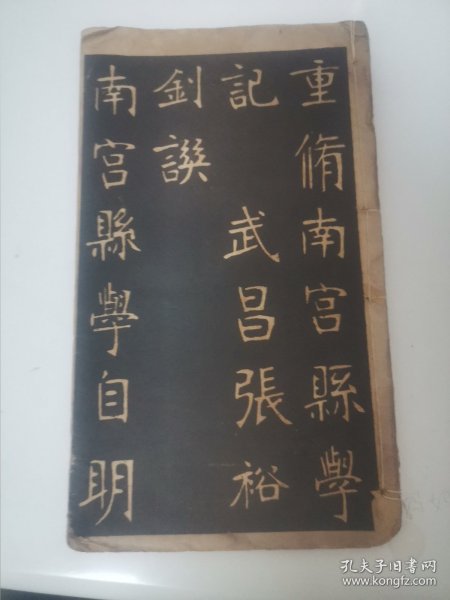 重脩南宫縣學
記 武昌張裕
釗譔
南宫縣學自明
孔夫子旧书网
www.kongfz.com